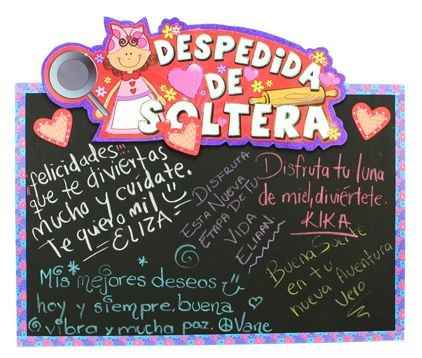 DESPEDIDA
DE
SOLTERA
Felicidades!!!
que te diviertas
mucho y cuídate.
Te quero mil
ELIZA
DISFRUTA
ESTA NUEVA
ETAPA DE TU
VIDA
Disfruta tu luna
de miel, diviértete.
KIKA
Buena Suerte
en tu
nueva Aventura
Vero
Mis mejores deseos
hoy y siempre, buena
vibra y mucha paz. Vane